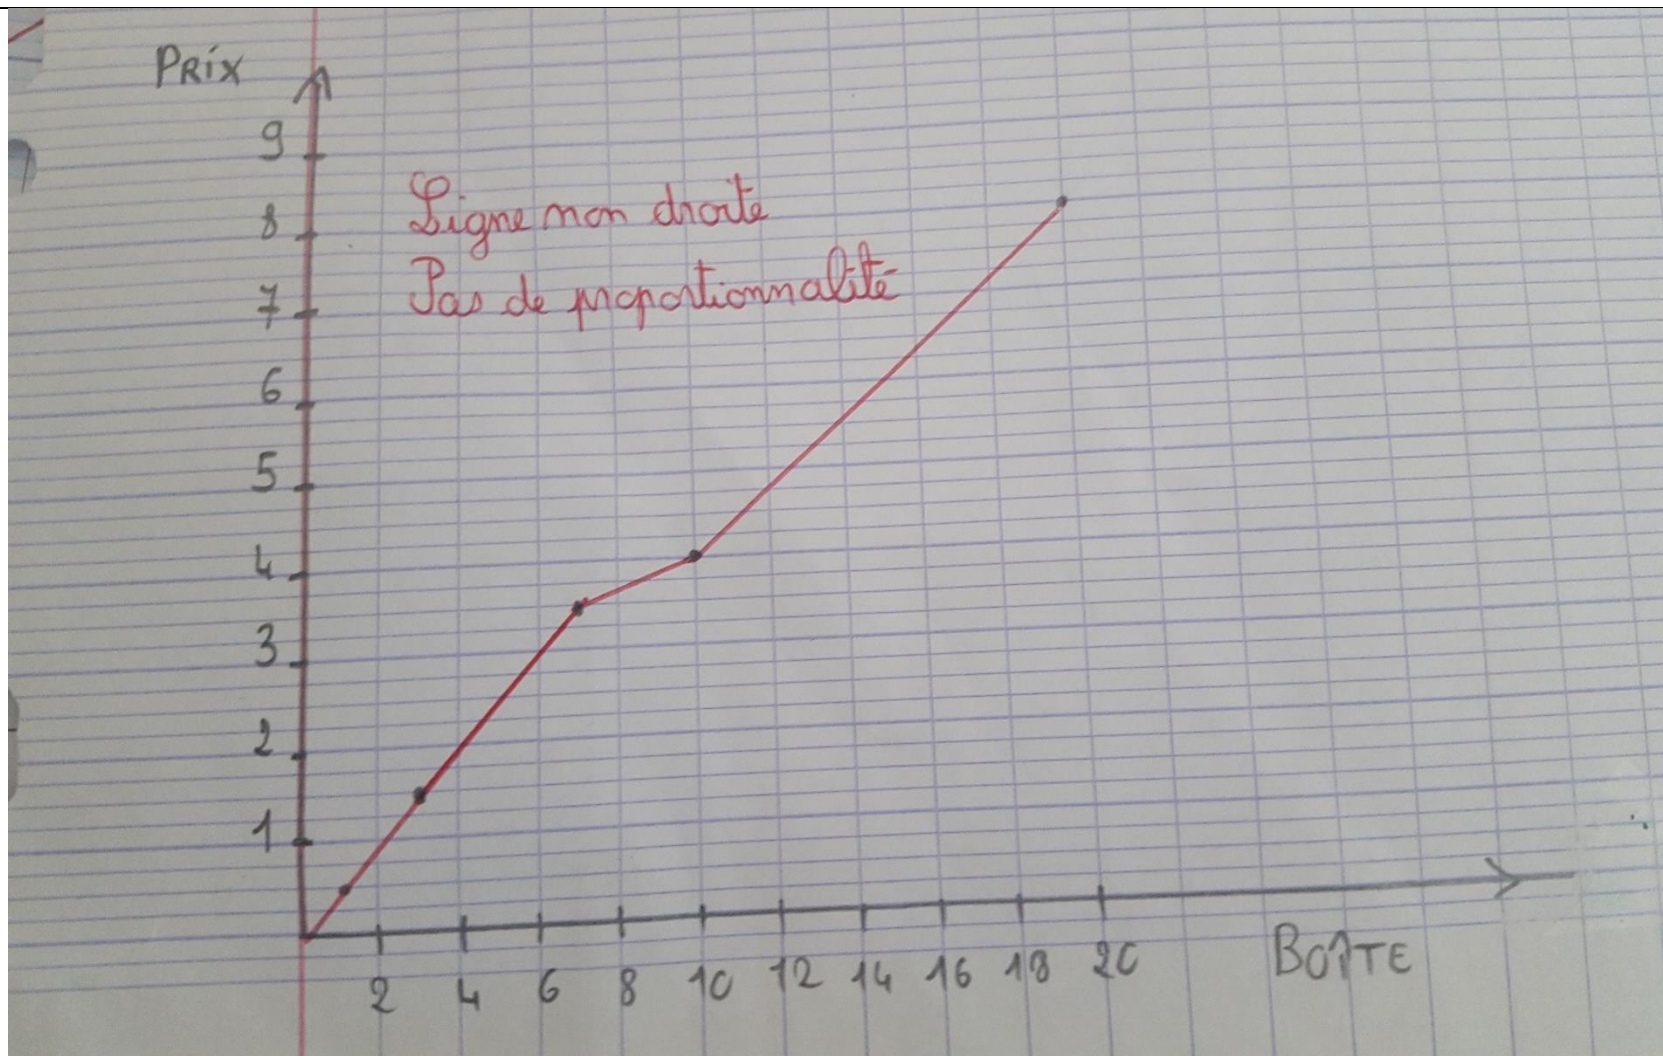 PRIX
9
8
7
6
5
4
3
2
1
Ligne non droite
Pas de proportionnalité
2 4 6 8 10 12 14 16 18 20
BOÎTE